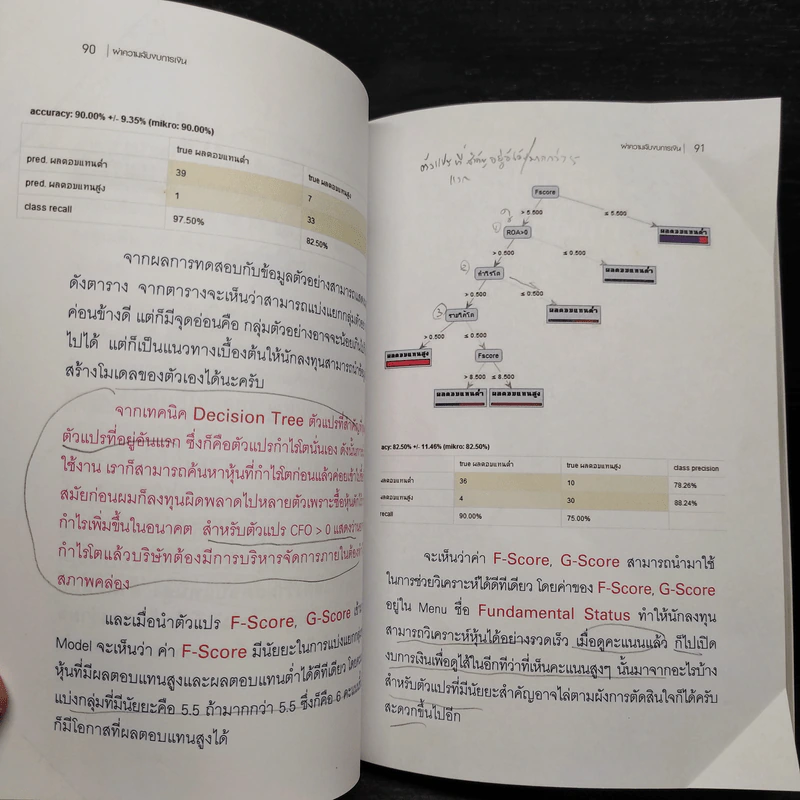 90 | ผ่าความลับงบการเงิน
accuracy: 90.00% +/- 9.35% (mikro: 90.00%)
true ผลตอบแทนต่ำ
true ผลตอบแทนสูง
pred. ผลตอบแทนต่ำ
39
7
pred. ผลตอบแทนสูง
1
33
class recall
97.50%
82.50%
จากผลการทดสอบกับข้อมูลตัวอย่างสามารถแสดง
ดังตาราง จากตารางจะเห็นว่าสามารถแบ่งแยกกลุ่มด้วย
ค่อนข้างดี แต่ก็มีจุดอ่อนคือ กลุ่มตัวอย่างอาจจะน้อยเกิน
ไปได้ แต่ก็เป็นแนวทางเบื้องต้นให้นักลงทุนสามารถนำข้อมูล
สร้างโมเดลของตัวเองได้นะครับ
จากเทคนิค Decision Tree ตัวแปรที่สำคัญ
ตัวแปรที่อยู่อันแรก ซึ่งก็คือตัวแปรกำไรโตนั่นเอง ดังนั้น
ใช้งาน เราก็สามารถค้นหาหุ้นที่กำไรโตก่อนแล้วค่อย
สมัยก่อนผมก็ลงทุนผิดพลาดไปหลายตัวเพราะซื้อหุ้น
กำไรเพิ่มขึ้นในอนาคต สำหรับตัวแปร CFO > 0 แสดงว่า
กำไรโตแล้วบริษัทต้องมีการบริหารจัดการภายใน
สภาพคล่อง
และเมื่อนำตัวแปร F-Score, G-Score
Model จะเห็นว่า ค่า F-Score มีนัยยะในการแบ่งแยก
หุ้นที่มีผลตอบแทนสูงและผลตอบแทนต่ำได้ดีทีเดียว
แบ่งกลุ่มที่มีนัยยะคือ 5.5 ถ้ามากกว่า 5.5 ซึ่งก็คือ 6
ก็มีโอกาสที่ผลตอบแทนสูงได้
ผ่าความลับงบการเงิน | 91
Fscore
> 5.500
≤ 5.500
ROA>0
ผลตอบแทนต่ำ
> 0.500
≤ 0.500
②
กำไรโต
ผลตอบแทนต่ำ
> 0.500
≤ 0.500
③
รายได้โต
ผลตอบแทนต่ำ
> 0.500
≤ 0.500
ผลตอบแทนสูง
Fscore
> 8.500
≤ 8.500
ผลตอบแทนต่ำ
ผลตอบแทนสูง
acy: 82.50% +/- 11.46% (mikro: 82.50%)
true ผลตอบแทนต่ำ
true ผลตอบแทนสูง
class precision
ผลตอบแทนต่ำ
36
10
78.26%
ผลตอบแทนสูง
4
30
88.24%
recall
90.00%
75.00%
จะเห็นว่าค่า F-Score, G-Score สามารถนำมาใช้
ในการช่วยวิเคราะห์ได้ดีทีเดียว โดยค่าของ F-Score, G-Score
อยู่ใน Menu ชื่อ Fundamental Status ทำให้นักลงทุน
สามารถวิเคราะห์หุ้นได้อย่างรวดเร็ว เมื่อดูคะแนนแล้ว ก็ไปเปิด
งบการเงินเพื่อดูไส้ในอีกทีว่าที่เห็นคะแนนสูงๆ นั้นมาจากอะไรบ้าง
สำหรับตัวแปรที่มีนัยยะสำคัญอาจไล่ตามผังการตัดสินใจก็ได้ครับ
สะดวกขึ้นไปอีก